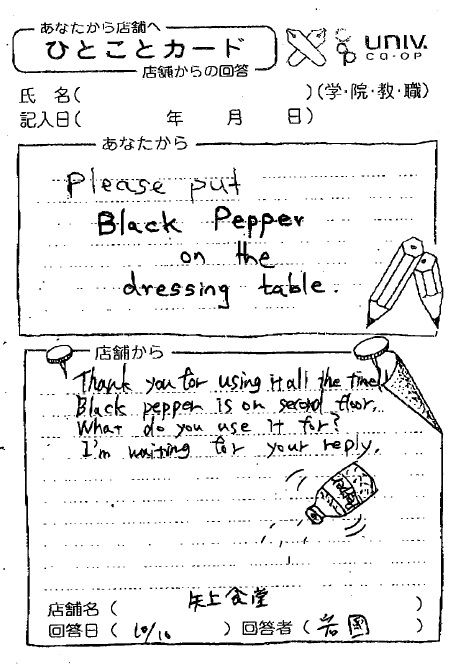 あなたから店舗へ
ひとことカード
店舗からの回答
univ.
CO-OP
氏 名( )(学・院・教・職)
記入日( 年 月 日)
あなたから
Please put
Black Pepper
on the
dressing table.
店舗から
Thank you for using it all the time!
Black pepper is on second floor.
What do you use it for?
I'm waiting for your reply.
店舗名( 矢上食堂 )
回答日( 10/10 )回答者( 岩國 )